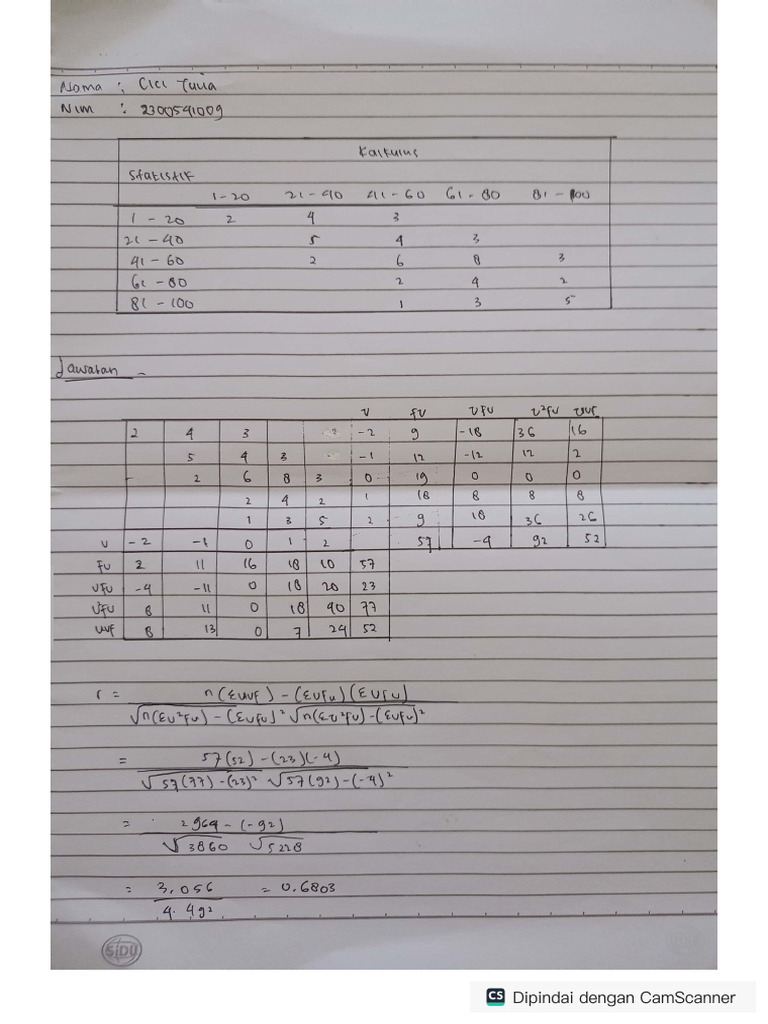 Nama : Cici Tulia
Nim : 2300541009
Kalkulus
Statistik
1-20 21-40 41-60 61-80 81-100
1-20 2 4 3
21-40 5 4 3
41-60 2 6 8 3
61-80 2 4 2
81-100 1 3 5
Jawaban
V fv Vfv V²fv UVf
2 4 3 -2 9 -18 36 16
5 4 3 -1 12 -12 12 2
- 2 6 8 3 0 19 0 0 0
2 4 2 1 18 8 8 8
1 3 5 2 9 18 36 26
U -2 -1 0 1 2 57 -4 92 52
Fu 2 11 16 18 10 57
Ufu -4 -11 0 18 20 23
U²fu 8 11 0 18 40 77
UVf 8 13 0 7 24 52
r = n(ΣUVf) - (ΣUfu)(ΣVfv)
√n(ΣU²fu) - (ΣUfu)² √n(ΣV²fv) - (ΣVfv)²
= 57(52) - (23)(-4)
√57(77) - (23)² √57(92) - (-4)²
= 2964 - (-92)
√3860 √5228
= 3.056 = 0.6803
4.492
SIDU
CS Dipindai dengan CamScanner